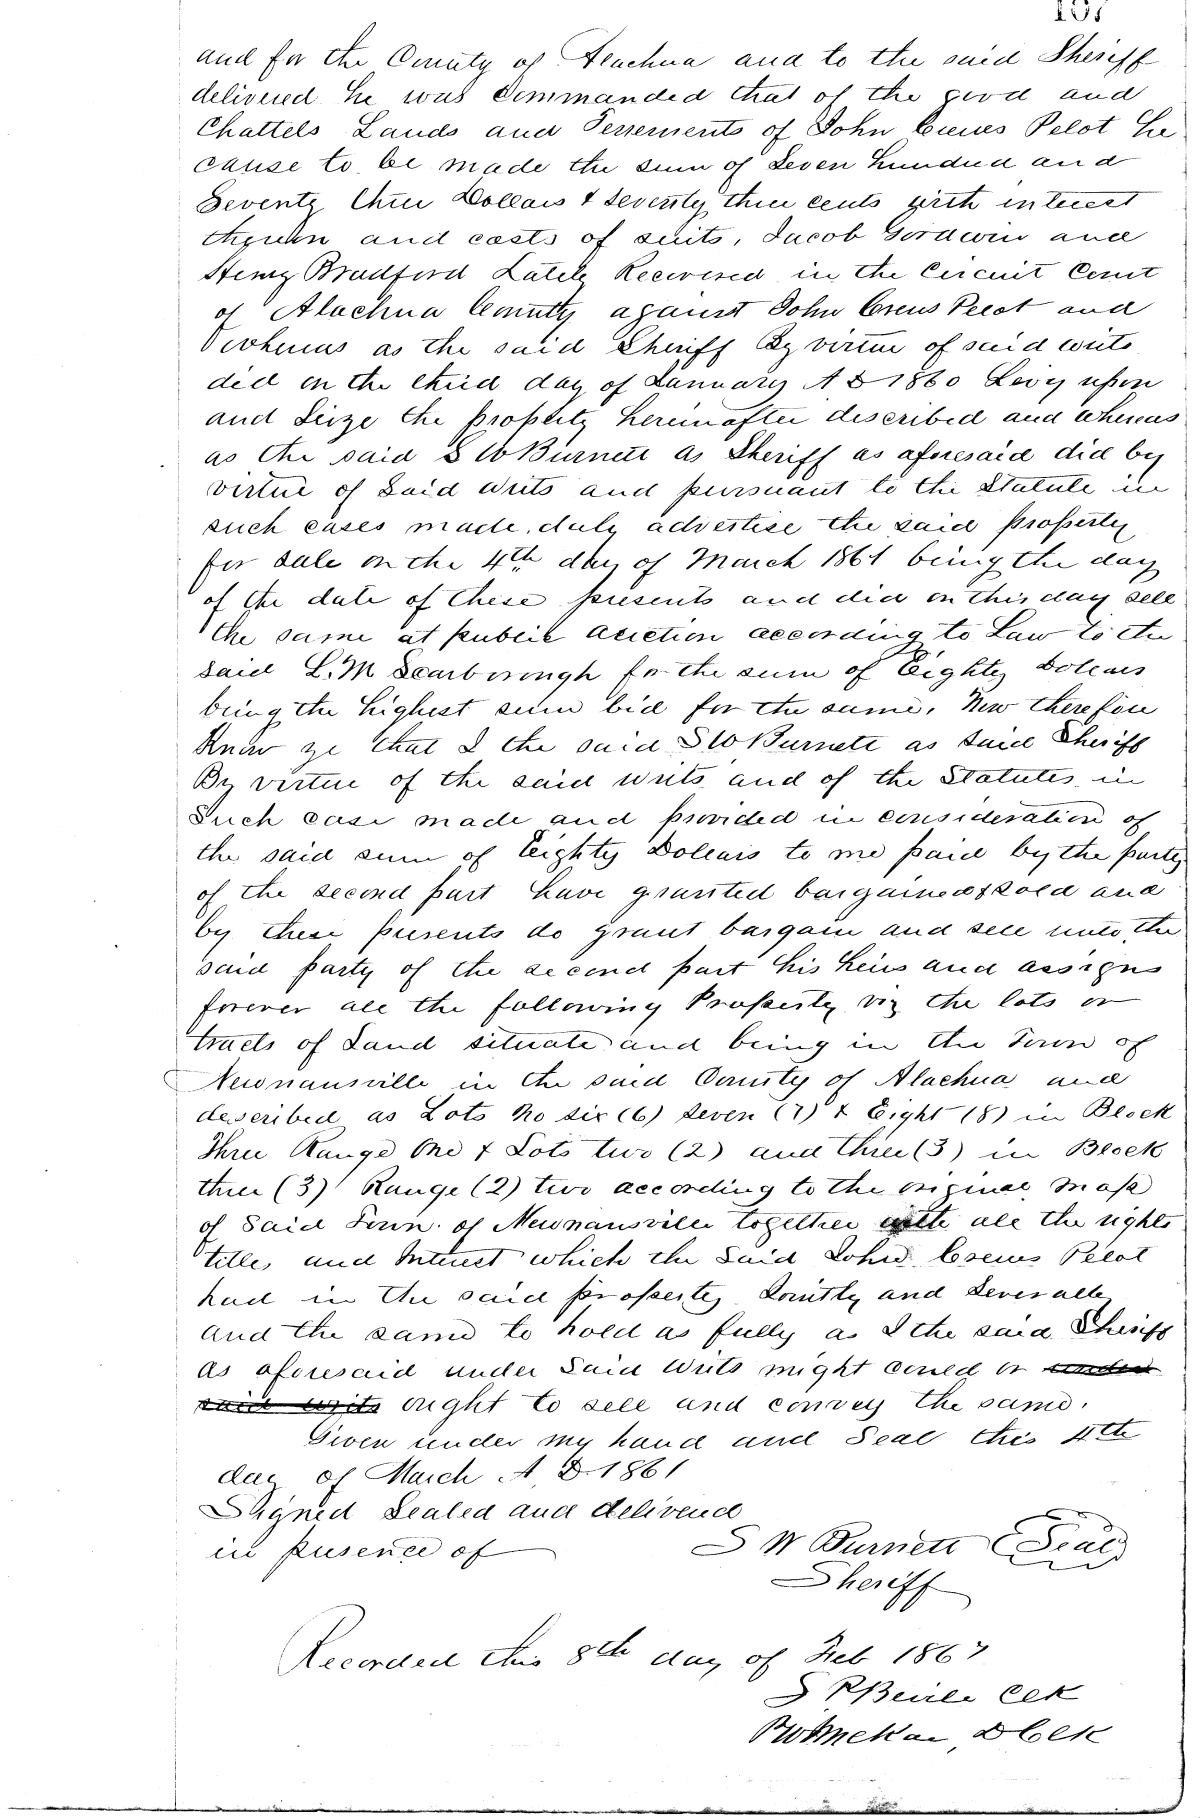 and for the County of Alachua and to the said Sheriff
delivered he was Commanded that of the good and
Chattels Lands and Tenements of John Crews Pelot he
cause to be made the sum of Seven hundred and
Seventy three Dollars & seventy three cents with interest
thereon and costs of suits, Jacob Goodwin and
Henry Bradford Lately Recovered in the Circuit Court
of Alachua County against John Crews Pelot and
Whereas as the said Sheriff By virtue of said writs
did on the third day of January A D 1860 Levy upon
and Seize the property hereinafter described and whereas
as the said S W Burnett as Sheriff as aforesaid did by
virtue of Said writs and pursuant to the Statute in
such cases made, duly advertise the said property
for sale on the 4th day of March 1861 being the day
of the date of these presents and did on this day sell
the same at public auction according to Law to the
said L. M Scarborough for the sum of Eighty Dollars
being the highest sum bid for the same, Now therefore
Know ye that I the said S W Burnett as said Sheriff
By virtue of the said writs and of the Statutes in
Such case made and provided in consideration of
the said sum of Eighty Dollars to me paid by the party
of the second part have granted bargained & sold and
by these presents do grant bargain and sell unto the
said party of the second part his heirs and assigns
forever all the following Property viz the lots or
tracts of Land situate and being in the Town of
Newnansville in the said County of Alachua and
described as Lots No six (6) seven (7) & Eight (8) in Block
Three Range One & Lots two (2) and three (3) in Block
three (3) Range (2) two according to the original Map
of Said Town of Newnansville together with all the rights
title, and Interest which the Said John Crews Pelot
had in the said property Jointly and Severally
and the same to hold as fully as I the said Sheriff
as aforesaid under Said writs might could or under
said writs ought to sell and convey the same.
Given under my hand and Seal this 4th
day of March A D 1861
Signed Sealed and delivered
in presence of
S W Burnett (Seal)
Sheriff
Recorded this 8th day of Feb 1867
S Clk
D Clk